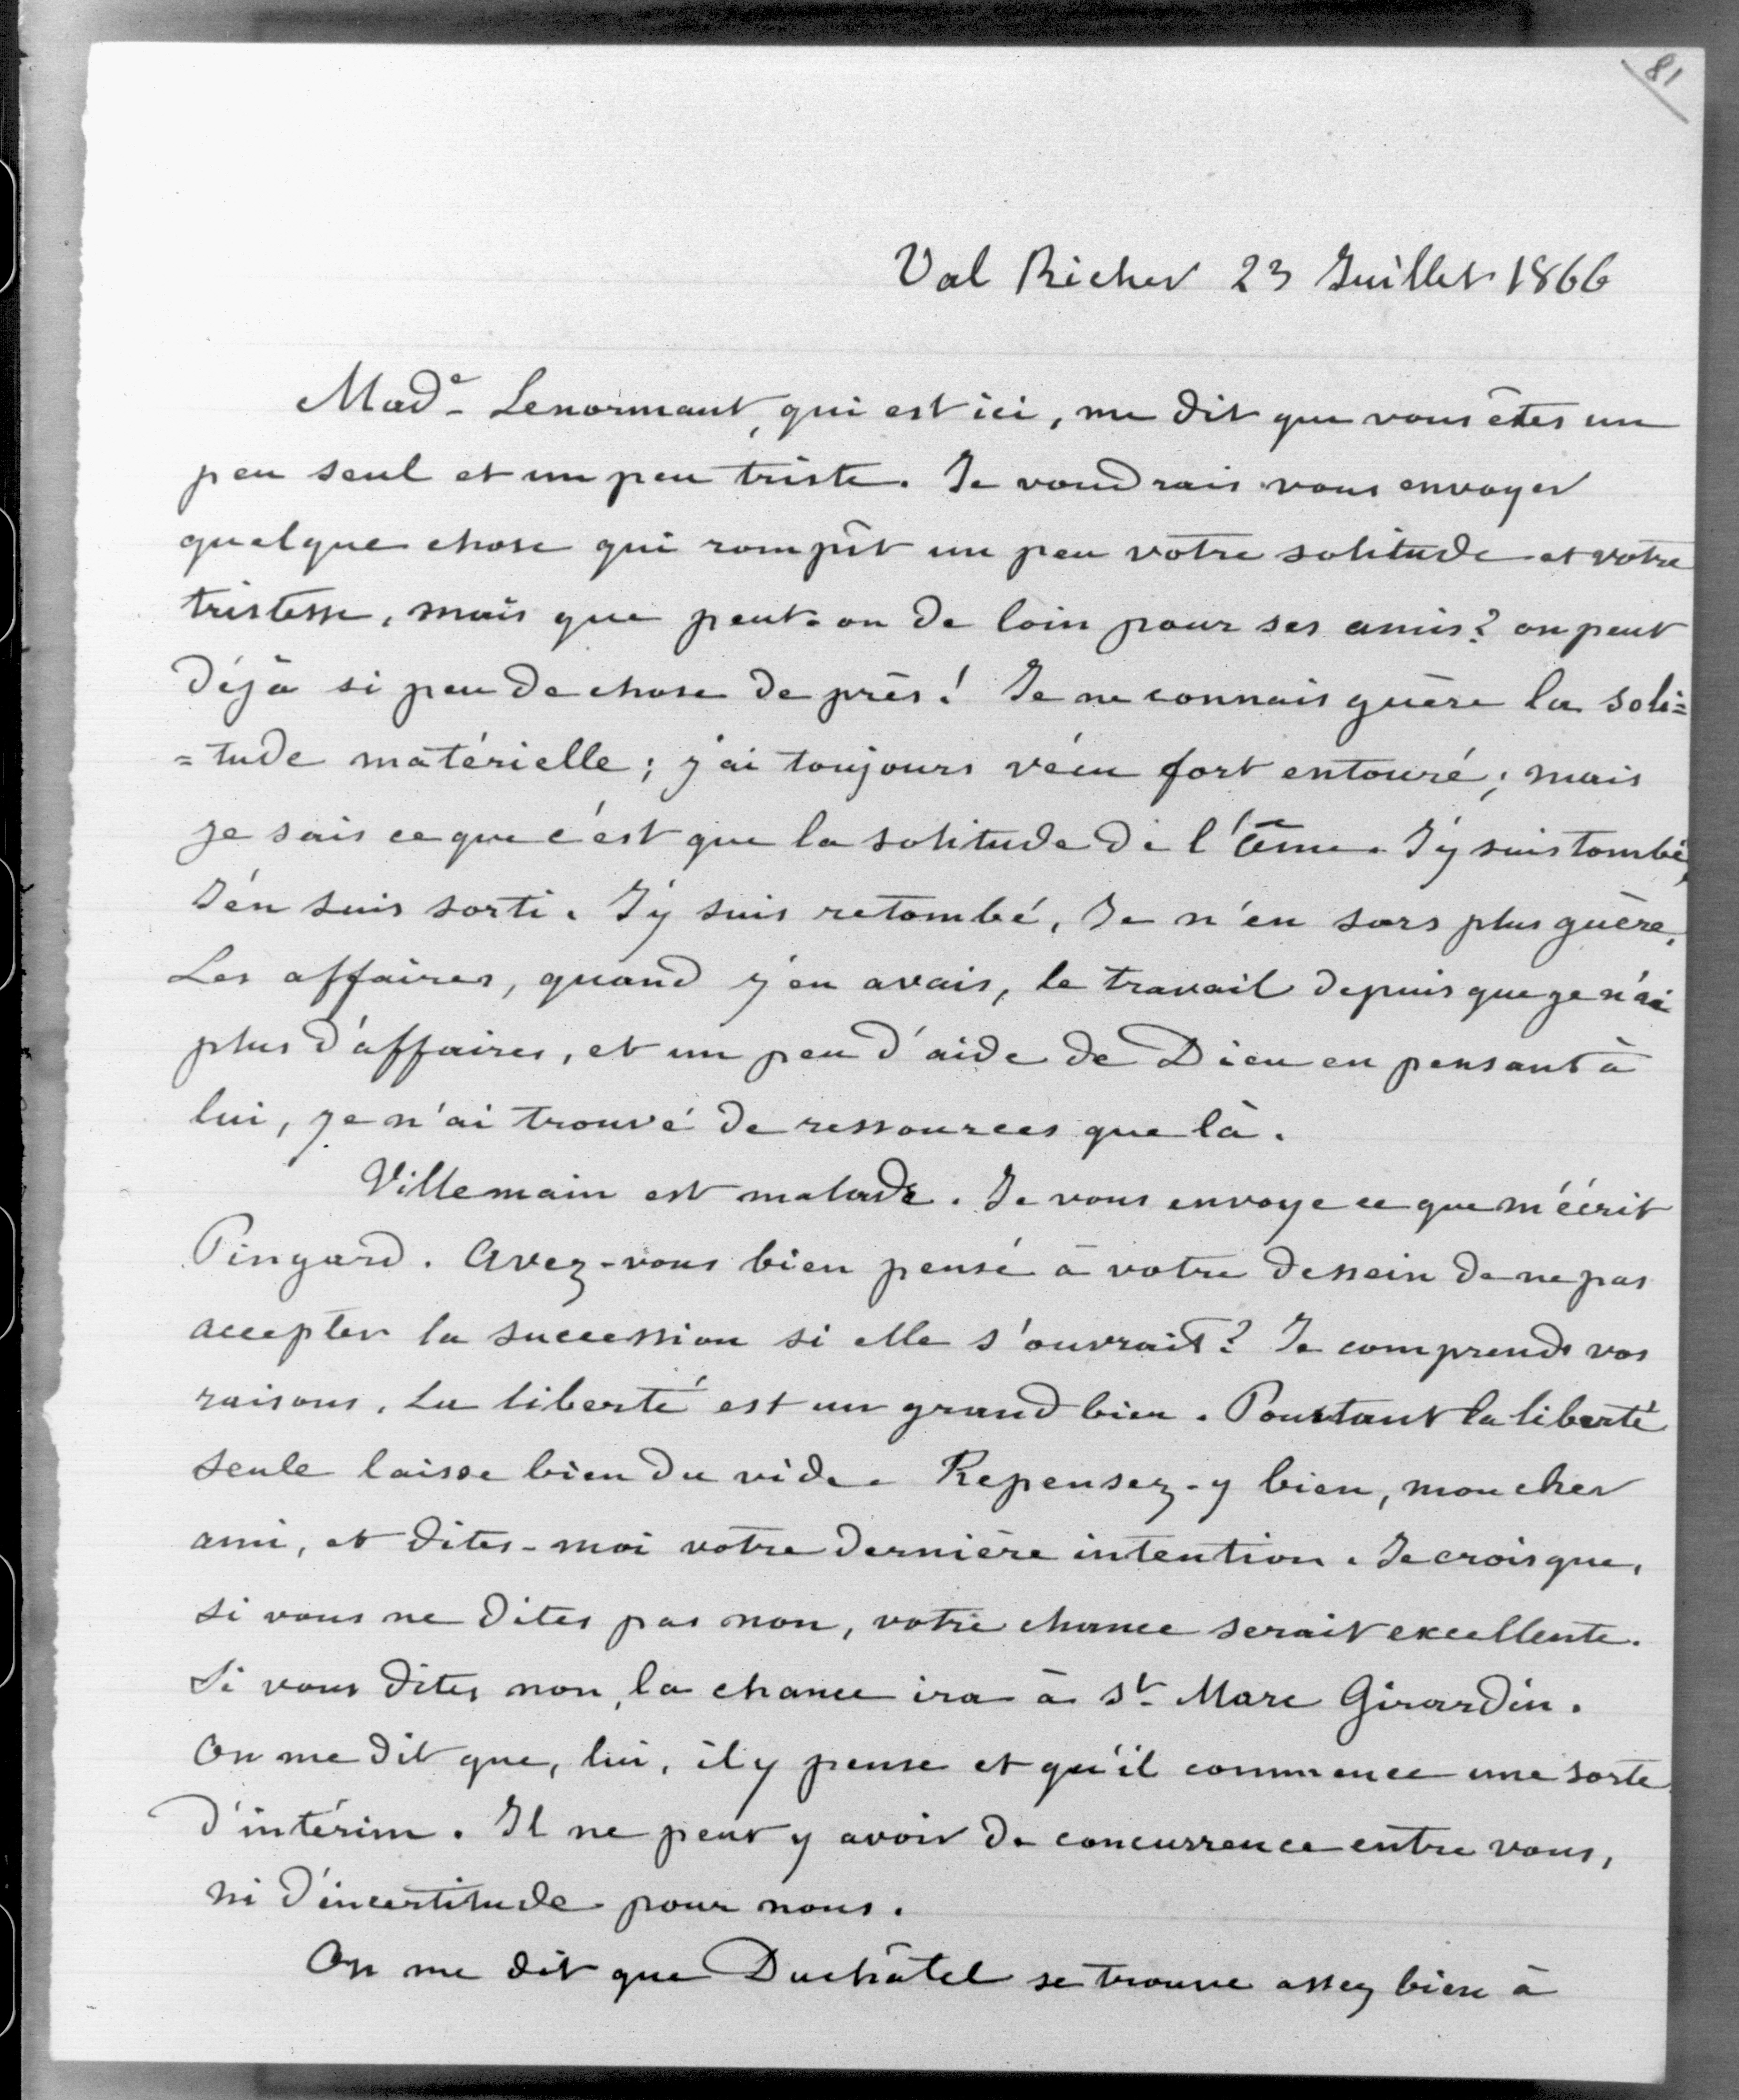 81
Val Richer 23 Juillet 1866
Made Lenormant, qui est ici, me dit que vous êtes un
peu seul et un peu triste. Je voudrais vous envoyer
quelque chose qui rompît un peu votre solitude et votre
tristesse, mais que peut-on de loin pour ses amis? on peut
déjà si peu de chose de près! Je ne connais guère la soli=
=tude matérielle; j'ai toujours vécu fort entouré; mais
je sais ce que c'est que la solitude de l'âme. J'y suis tombé,
J'en suis sorti. J'y suis retombé, Je n'en sors plus guère.
Les affaires, quand j'en avais, le travail depuis que je n'ai
plus d'affaires, et un peu d'aide de Dieu en pensant à
lui, je n'ai trouvé de ressources que là.
Villemain est malade. Je vous envoye ce que m'écrit
Pingard. Avez-vous bien pensé à votre dessein de ne pas
accepter la succession si elle s'ouvrait? Je comprends vos
raisons. La liberté est un grand bien. Pourtant la liberté
seule laisse bien du vide. Repensez-y bien, mon cher
ami, et dites-moi votre dernière intention. Je crois que,
si vous ne dites pas non, votre chance serait excellente.
Si vous dites non, la chance ira à St Marc Girardin.
On me dit que, lui, il y pense et qu'il commence une sorte
d'intérim. Il ne peut y avoir de concurrence entre vous,
ni d'incertitude pour nous.
On me dit que Duchâtel se trouve assez bien à